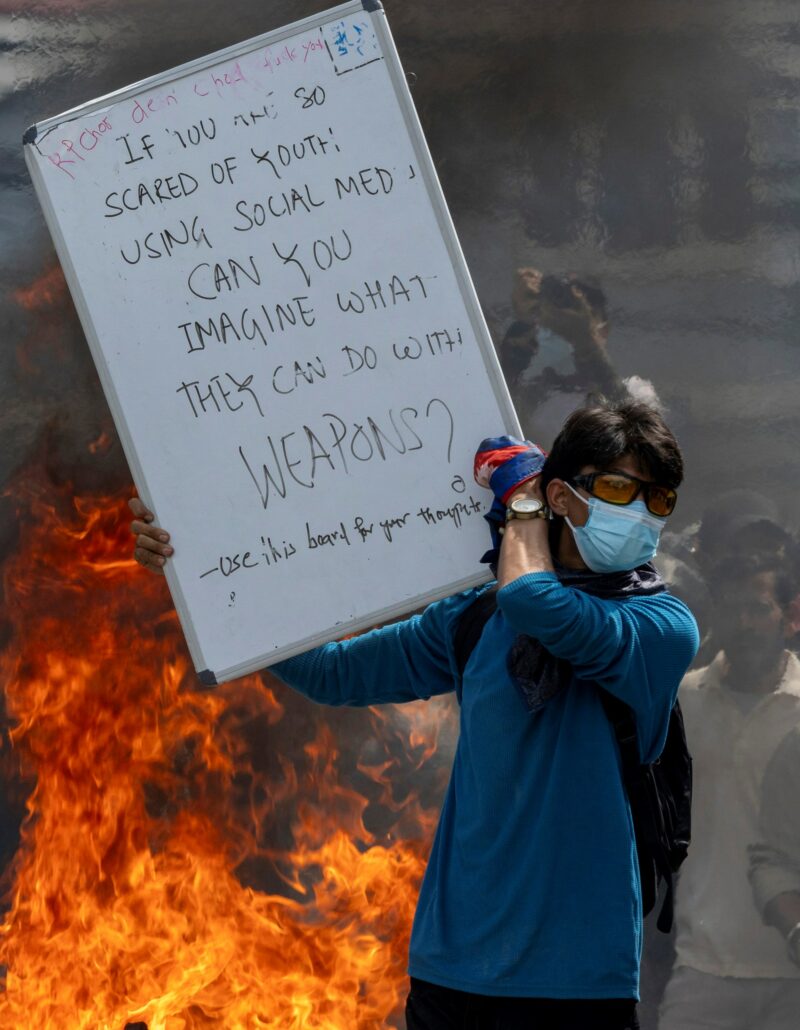 fuck you
IF YOU ARE SO
SCARED OF YOUTH
USING SOCIAL MED
CAN YOU
IMAGINE WHAT
THEY CAN DO WITH
WEAPONS?
- USE this board for your thoughts.